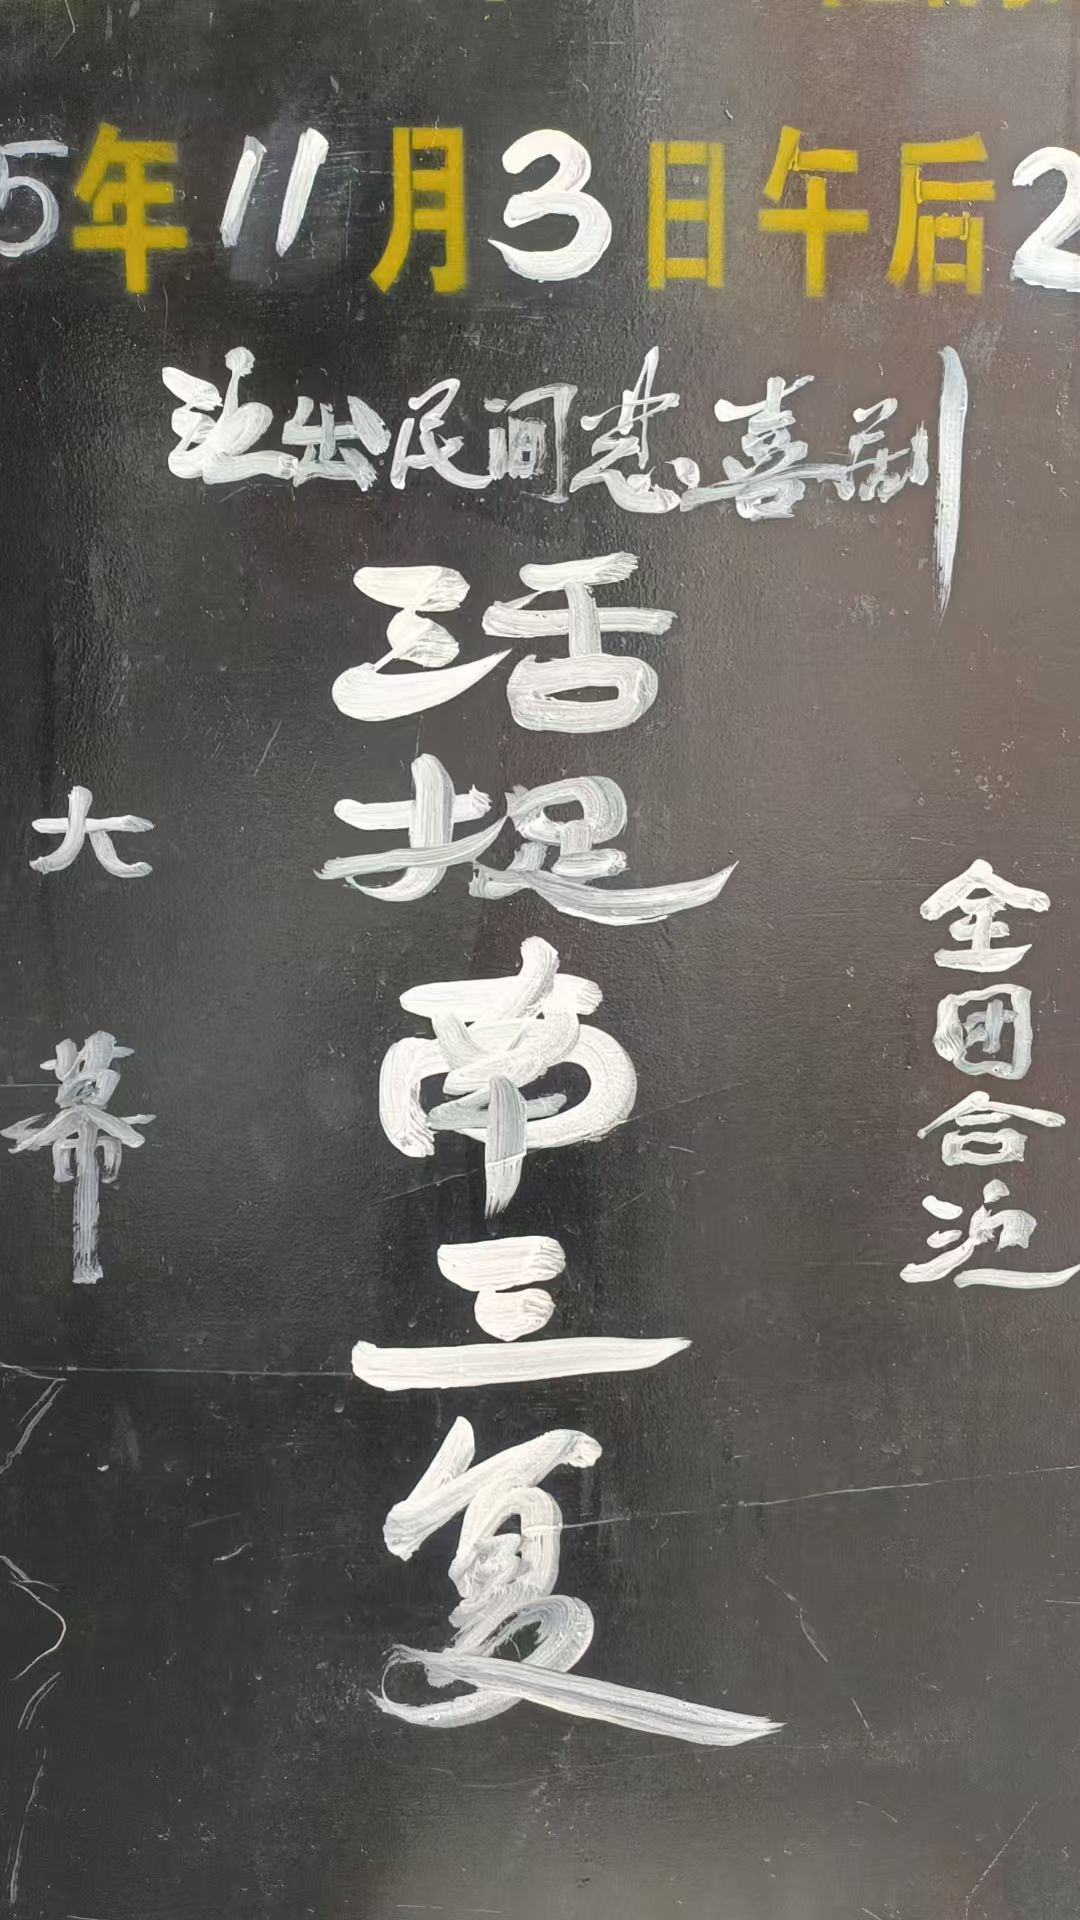 5年11月3日午后2
演出民间悲喜剧
大幕
活捉南三复
全团合演